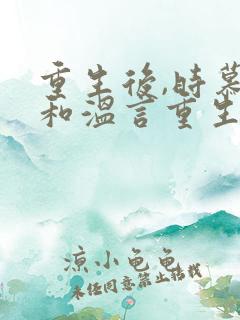 重生後,時慕
和溫言重生
涼小龜龜
未经同意禁止转载